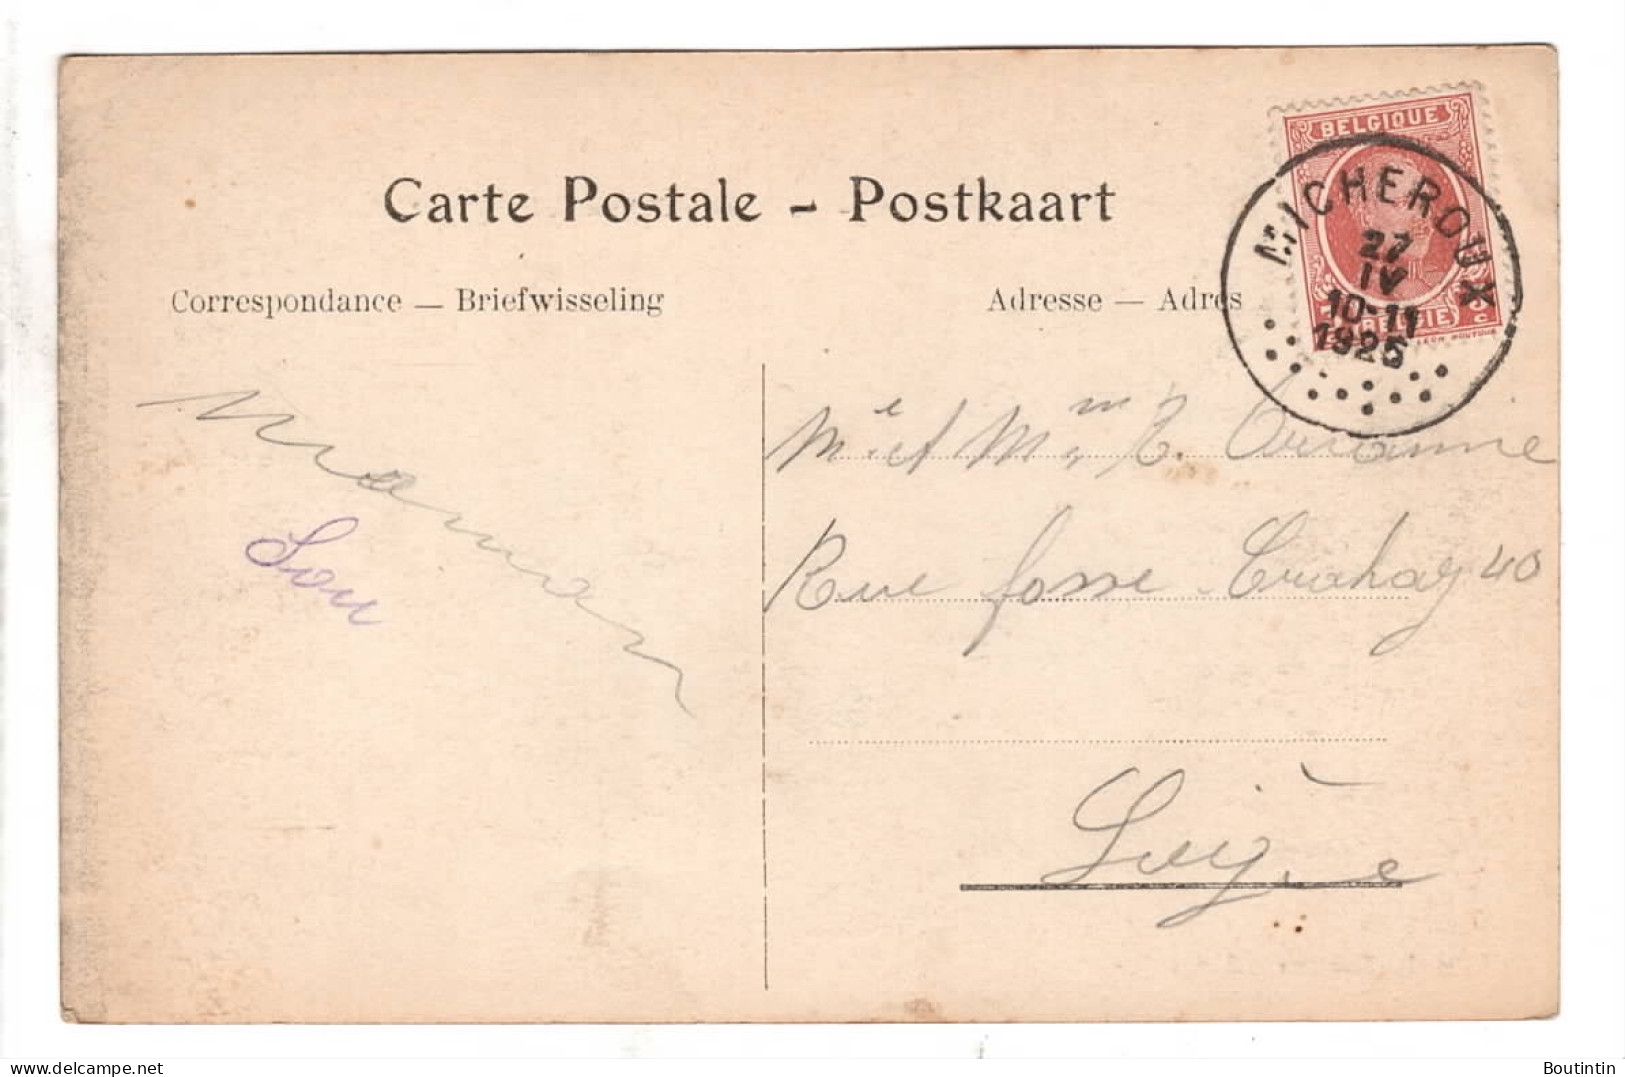 Carte Postale - Postkaart
Correspondance — Briefwisseling
Adresse — Adres
BELGIQUE
BELGIË
MICHEROUX
27
IV
10-11
1925
maman
Lou
Mr et Mme
Rue fosse Crahay 40
Liège
delcampe.net
Boutintin